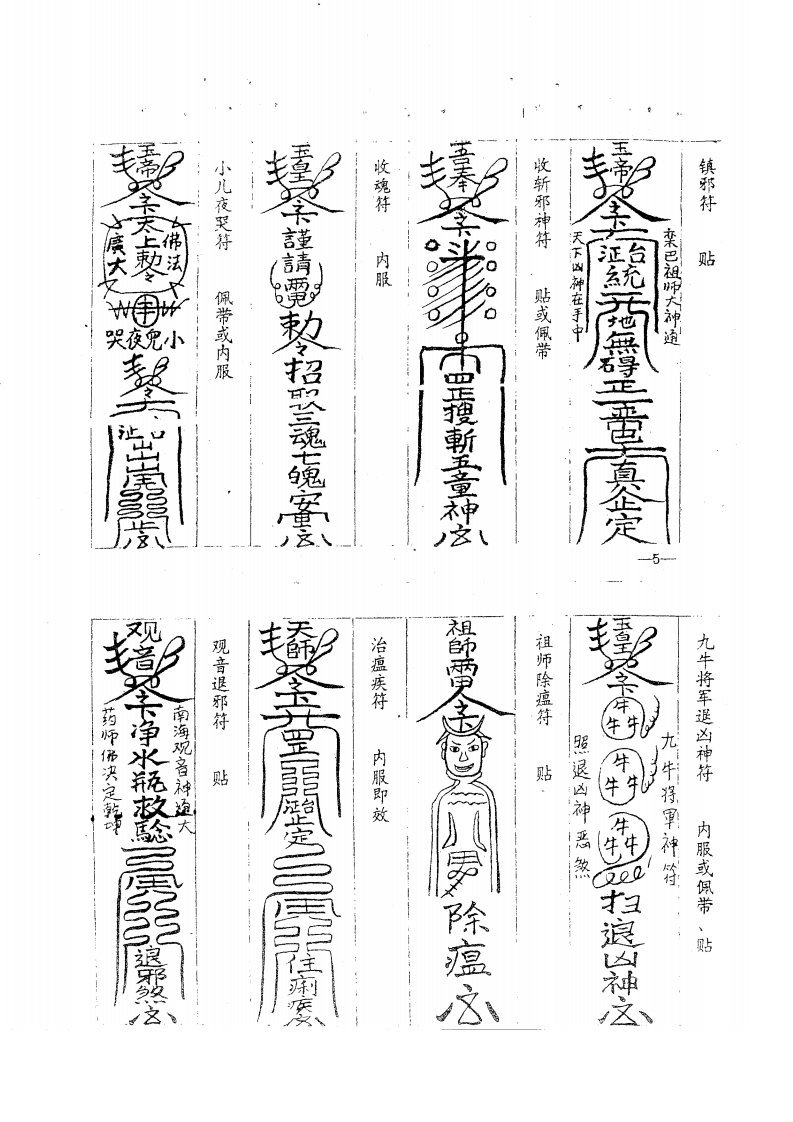 镇邪符 贴
栾巴祖师大神通
玉帝
台
统
地無碍
真
定
天下凶神在手中
收斩邪神符 贴或佩带
奉
斗
罡搜斬五童神
收魂符 内服
玉皇
謹請
勅令
招取三魂七魄安
小儿夜哭符 佩带或内服
玉帝
太上勅令
佛法
廣大
小兒夜哭
—5—
九牛将军退凶神符 内服或佩带、贴
玉皇
牛牛牛
牛牛牛
牛牛牛
九牛将軍神符
扫退凶神
照退凶神恶煞
祖师除瘟符 贴
祖師
除瘟
治瘟疾符 内服即效
天師
罡
定
住痢疾
观音退邪符 贴
观音
南海观音神通大
净水瓶救
退邪煞
药师佛决定乾坤